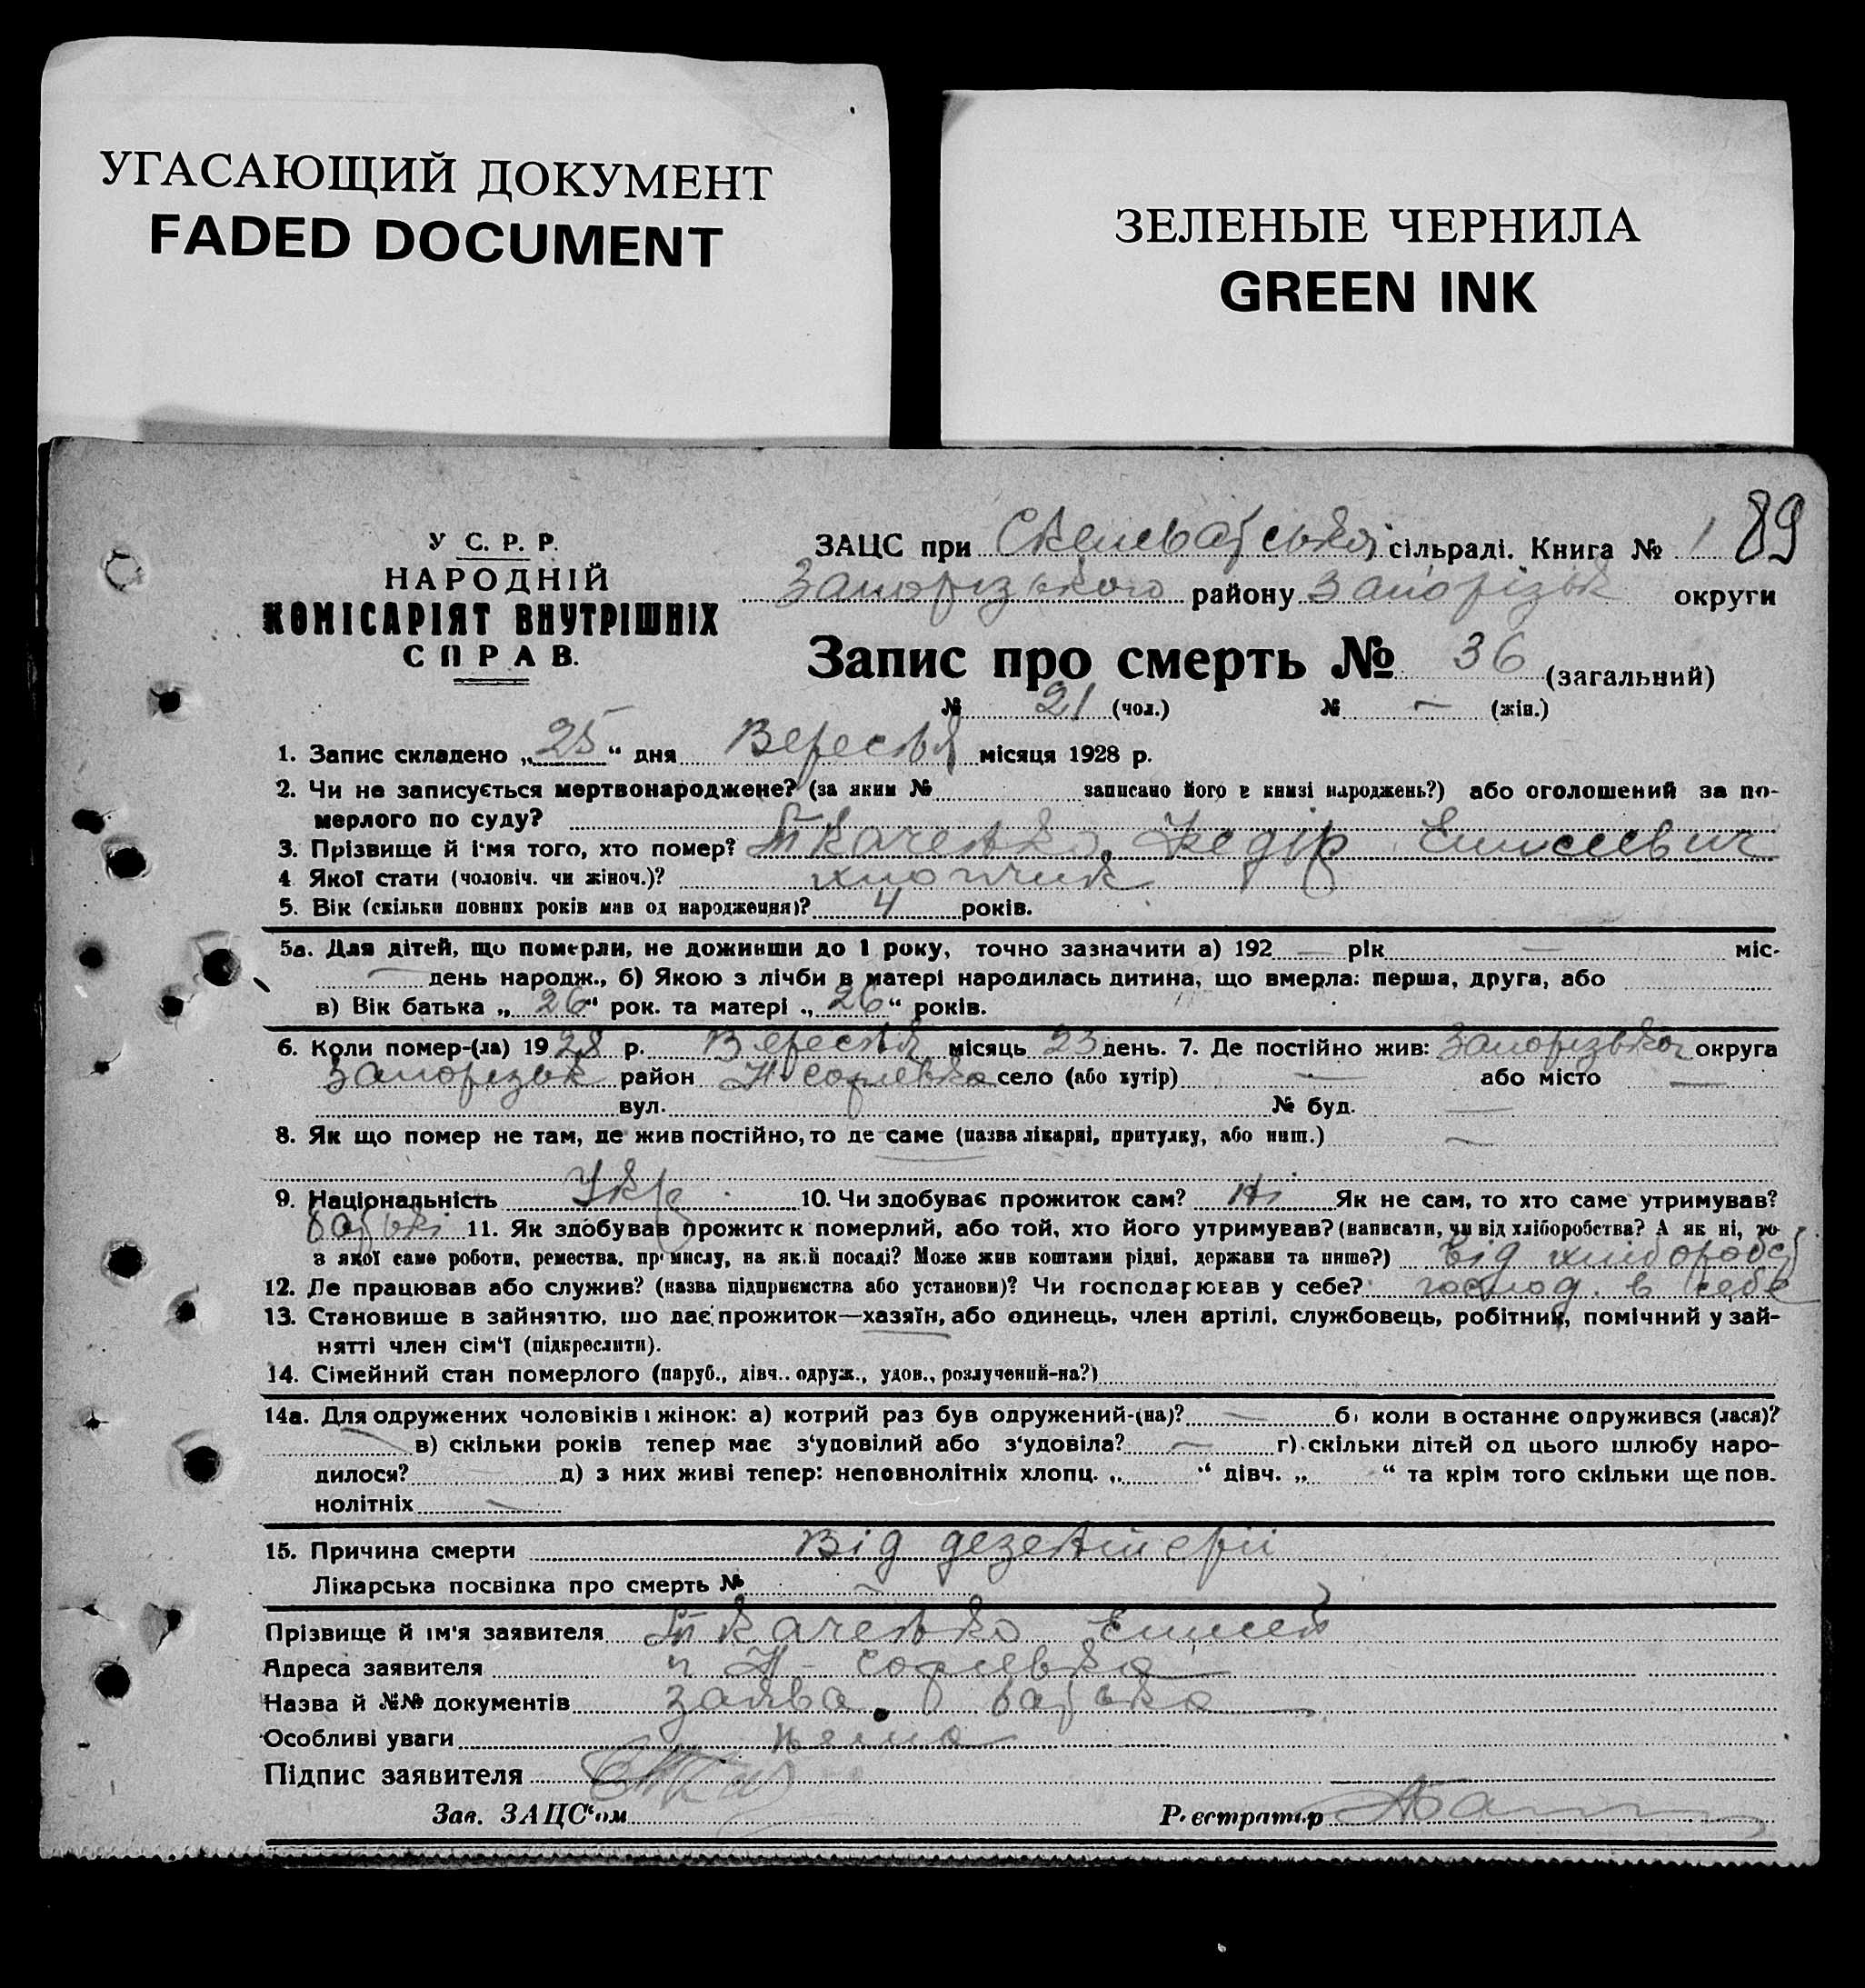 УГАСАЮЩИЙ ДОКУМЕНТ
FADED DOCUMENT
ЗЕЛЕНЫЕ ЧЕРНИЛА
GREEN INK
89
У С. Р. Р.
НАРОДНІЙ
КОМІСАРІЯТ ВНУТРІШНІХ
СПРАВ.
ЗАЦС при сільраді. Книга № 1
Запорізького району Запорізьк округи
Запис про смерть № 36 (загальний)
№ 21 (чол.) № — (жін.)
1. Запис складено „25“ дня Вересня місяця 1928 р.
2. Чи не записується мертвонароджене? (за яким № записано його в книзі народжень?) або оголошений за по-
мерлого по суду?
3. Прізвище й ім'я того, хто помер? Ткаченко Федір Елисеевич
4 Якої стати (чоловіч. чи жіноч.)? хлопчик
5. Вік (скільки повних років мав од народження)? 4 років.
5а. Для дітей, що померли, не доживши до 1 року, точно зазначити а) 192 — рік — міс-
— день народж., б) Якою з лічби в матері народилась дитина, що вмерла: перша, друга, або
в) Вік батька „26“ рок. та матері „26“ років.
6. Коли помер-(ла) 1928 р. Вересня місяць 23 день. 7. Де постійно жив: округа
Запорізьк район село (або хутір) — або місто —
вул. № буд. —
8. Як що помер не там, де жив постійно, то де саме (назва лікарні, притулку, або инш.) —
9. Національність Укр. 10. Чи здобуває прожиток сам? Ні Як не сам, то хто саме утримував?
батьки 11. Як здобував прожиток померлий, або той, хто його утримував? (написати, чи від хліборобства? А як ні, то
з якої саме роботи, ремества, промислу, на якій посаді? Може жив коштами рідні, держави та инше?) від хлибороб
12. Де працював або служив? (назва підприємства або установи)? Чи господарював у себе? господ. в себе
13. Становише в зайняттю, що дає прожиток—хазяїн, або одинець, член артілі, службовець, робітник, помічний у зай-
нятті член сім'ї (підкреслити).
14. Сімейний стан померлого (паруб., дівч., одруж., удов., розлучений-на?)
14а. Для одружених чоловіків і жінок: а) котрий раз був одружений-(на)? — б) коли востаннє одружився (лася)?
— в) скільки років тепер має з'удовілий або з'удовіла? — г) скільки дітей од цього шлюбу наро-
дилося? д) з них живі тепер: неповнолітніх хлопц. „ “ дівч. „ “ та крім того скільки ще пов.
нолітніх —
15. Причина смерти Від дезентерії
Лікарська посвідка про смерть № —
Прізвище й ім'я заявителя Ткаченко Елисей
Адреса заявителя
Назва й №№ документів заява батька
Особливі уваги нема
Підпис заявителя
Зав. ЗАЦС'ом Реєстратор